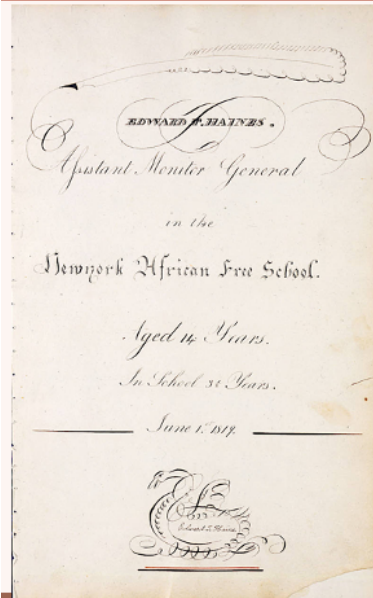 EDWARD T. HAINES.
Assistant Monitor General
in the
Newyork African Free School.
Aged 14 Years.
In School 3½ Years.
June 1st 1819.
Edward T. Haines